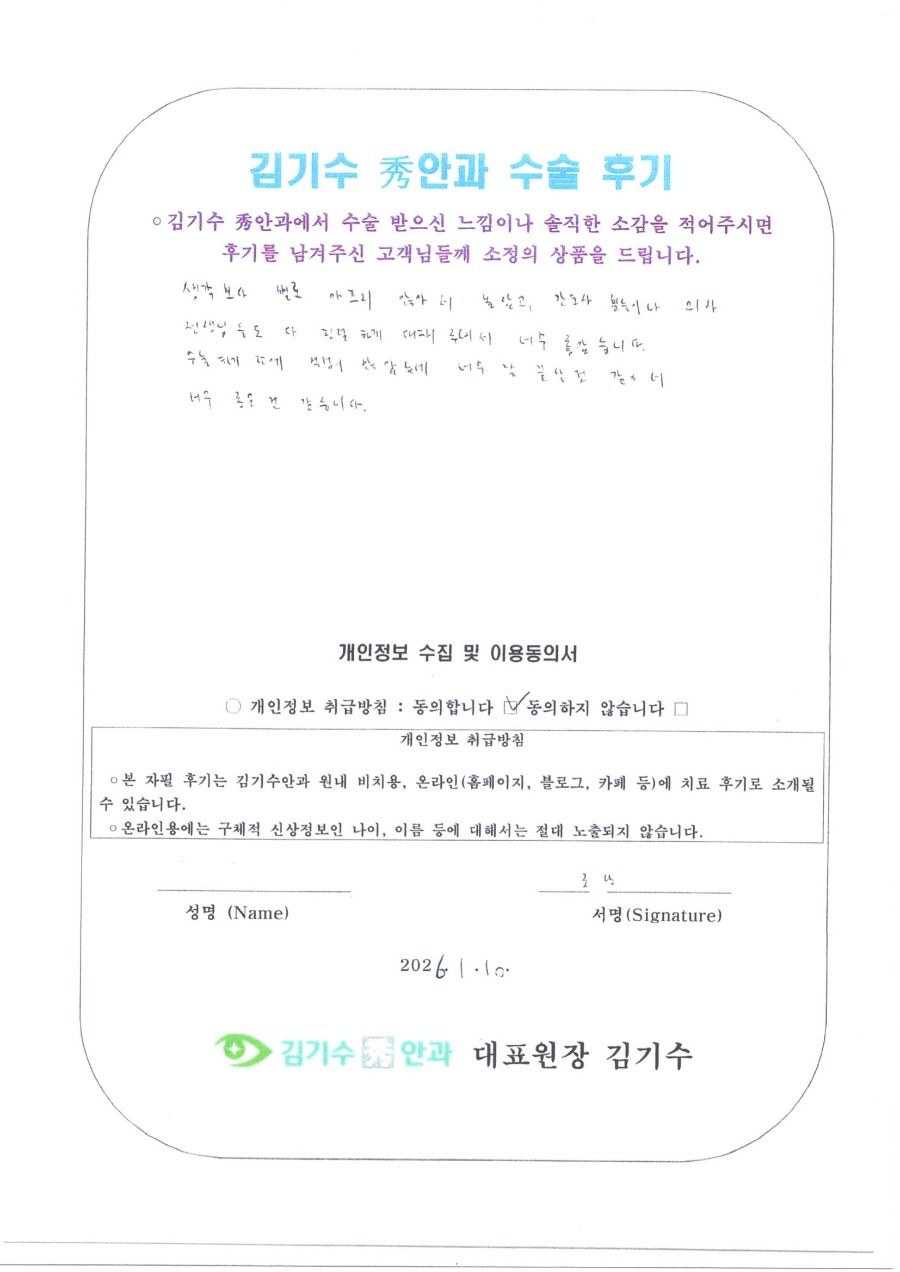 김기수 秀안과 수술 후기
○ 김기수 秀안과에서 수술 받으신 느낌이나 솔직한 소감을 적어주시면
후기를 남겨주신 고객님들께 소정의 상품을 드립니다.
생각보다 별로 아프지 않아서 놀랐고, 간호사 분들이나 의사
선생님들도 다 친절하게 대해주셔서 너무 좋았습니다.
수술 하기 전에 걱정이 많았는데 너무 잘 끝난 것 같아서
너무 좋은 것 같습니다.
개인정보 수집 및 이용동의서
○ 개인정보 취급방침 : 동의합니다 ☑ 동의하지 않습니다 □
개인정보 취급방침
○본 자필 후기는 김기수안과 원내 비치용, 온라인(홈페이지, 블로그, 카페 등)에 치료 후기로 소개될
수 있습니다.
○온라인용에는 구체적 신상정보인 나이, 이름 등에 대해서는 절대 노출되지 않습니다.
성명 (Name)
서명(Signature)
2026. 1. 10.
김기수 秀 안과 대표원장 김기수